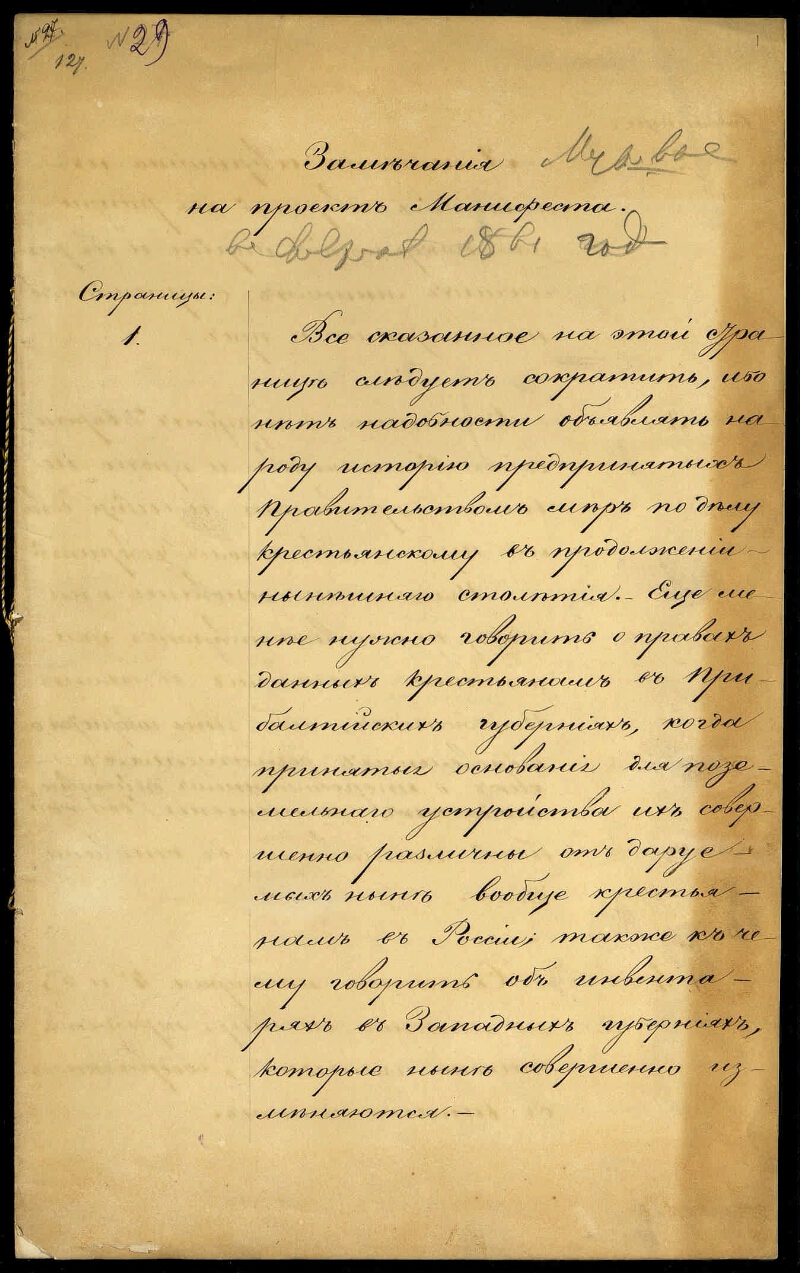 № 29
127.
Замѣчанія
на проектъ Манифеста.
1861 год
Страницы:
1.
Все сказанное на этой стра-
ницѣ слѣдуетъ сократить, ибо
нѣтъ надобности объявлять на-
роду исторію предпринятыхъ
Правительствомъ мѣръ по дѣлу
крестьянскому въ продолженіи
нынѣшняго столѣтія.- Еще ме-
нѣе нужно говорить о правахъ
данныхъ крестьянамъ въ При-
балтійскихъ губерніяхъ, когда
принятыя основанія для позе-
мельнаго устройства ихъ совер-
шенно различны отъ даруе-
мыхъ нынѣ вообще крестья-
намъ въ Россіи; также къ че-
му говорить объ инвента-
ряхъ въ Западныхъ губерніяхъ,
которые нынѣ совершенно из-
мѣняются.-